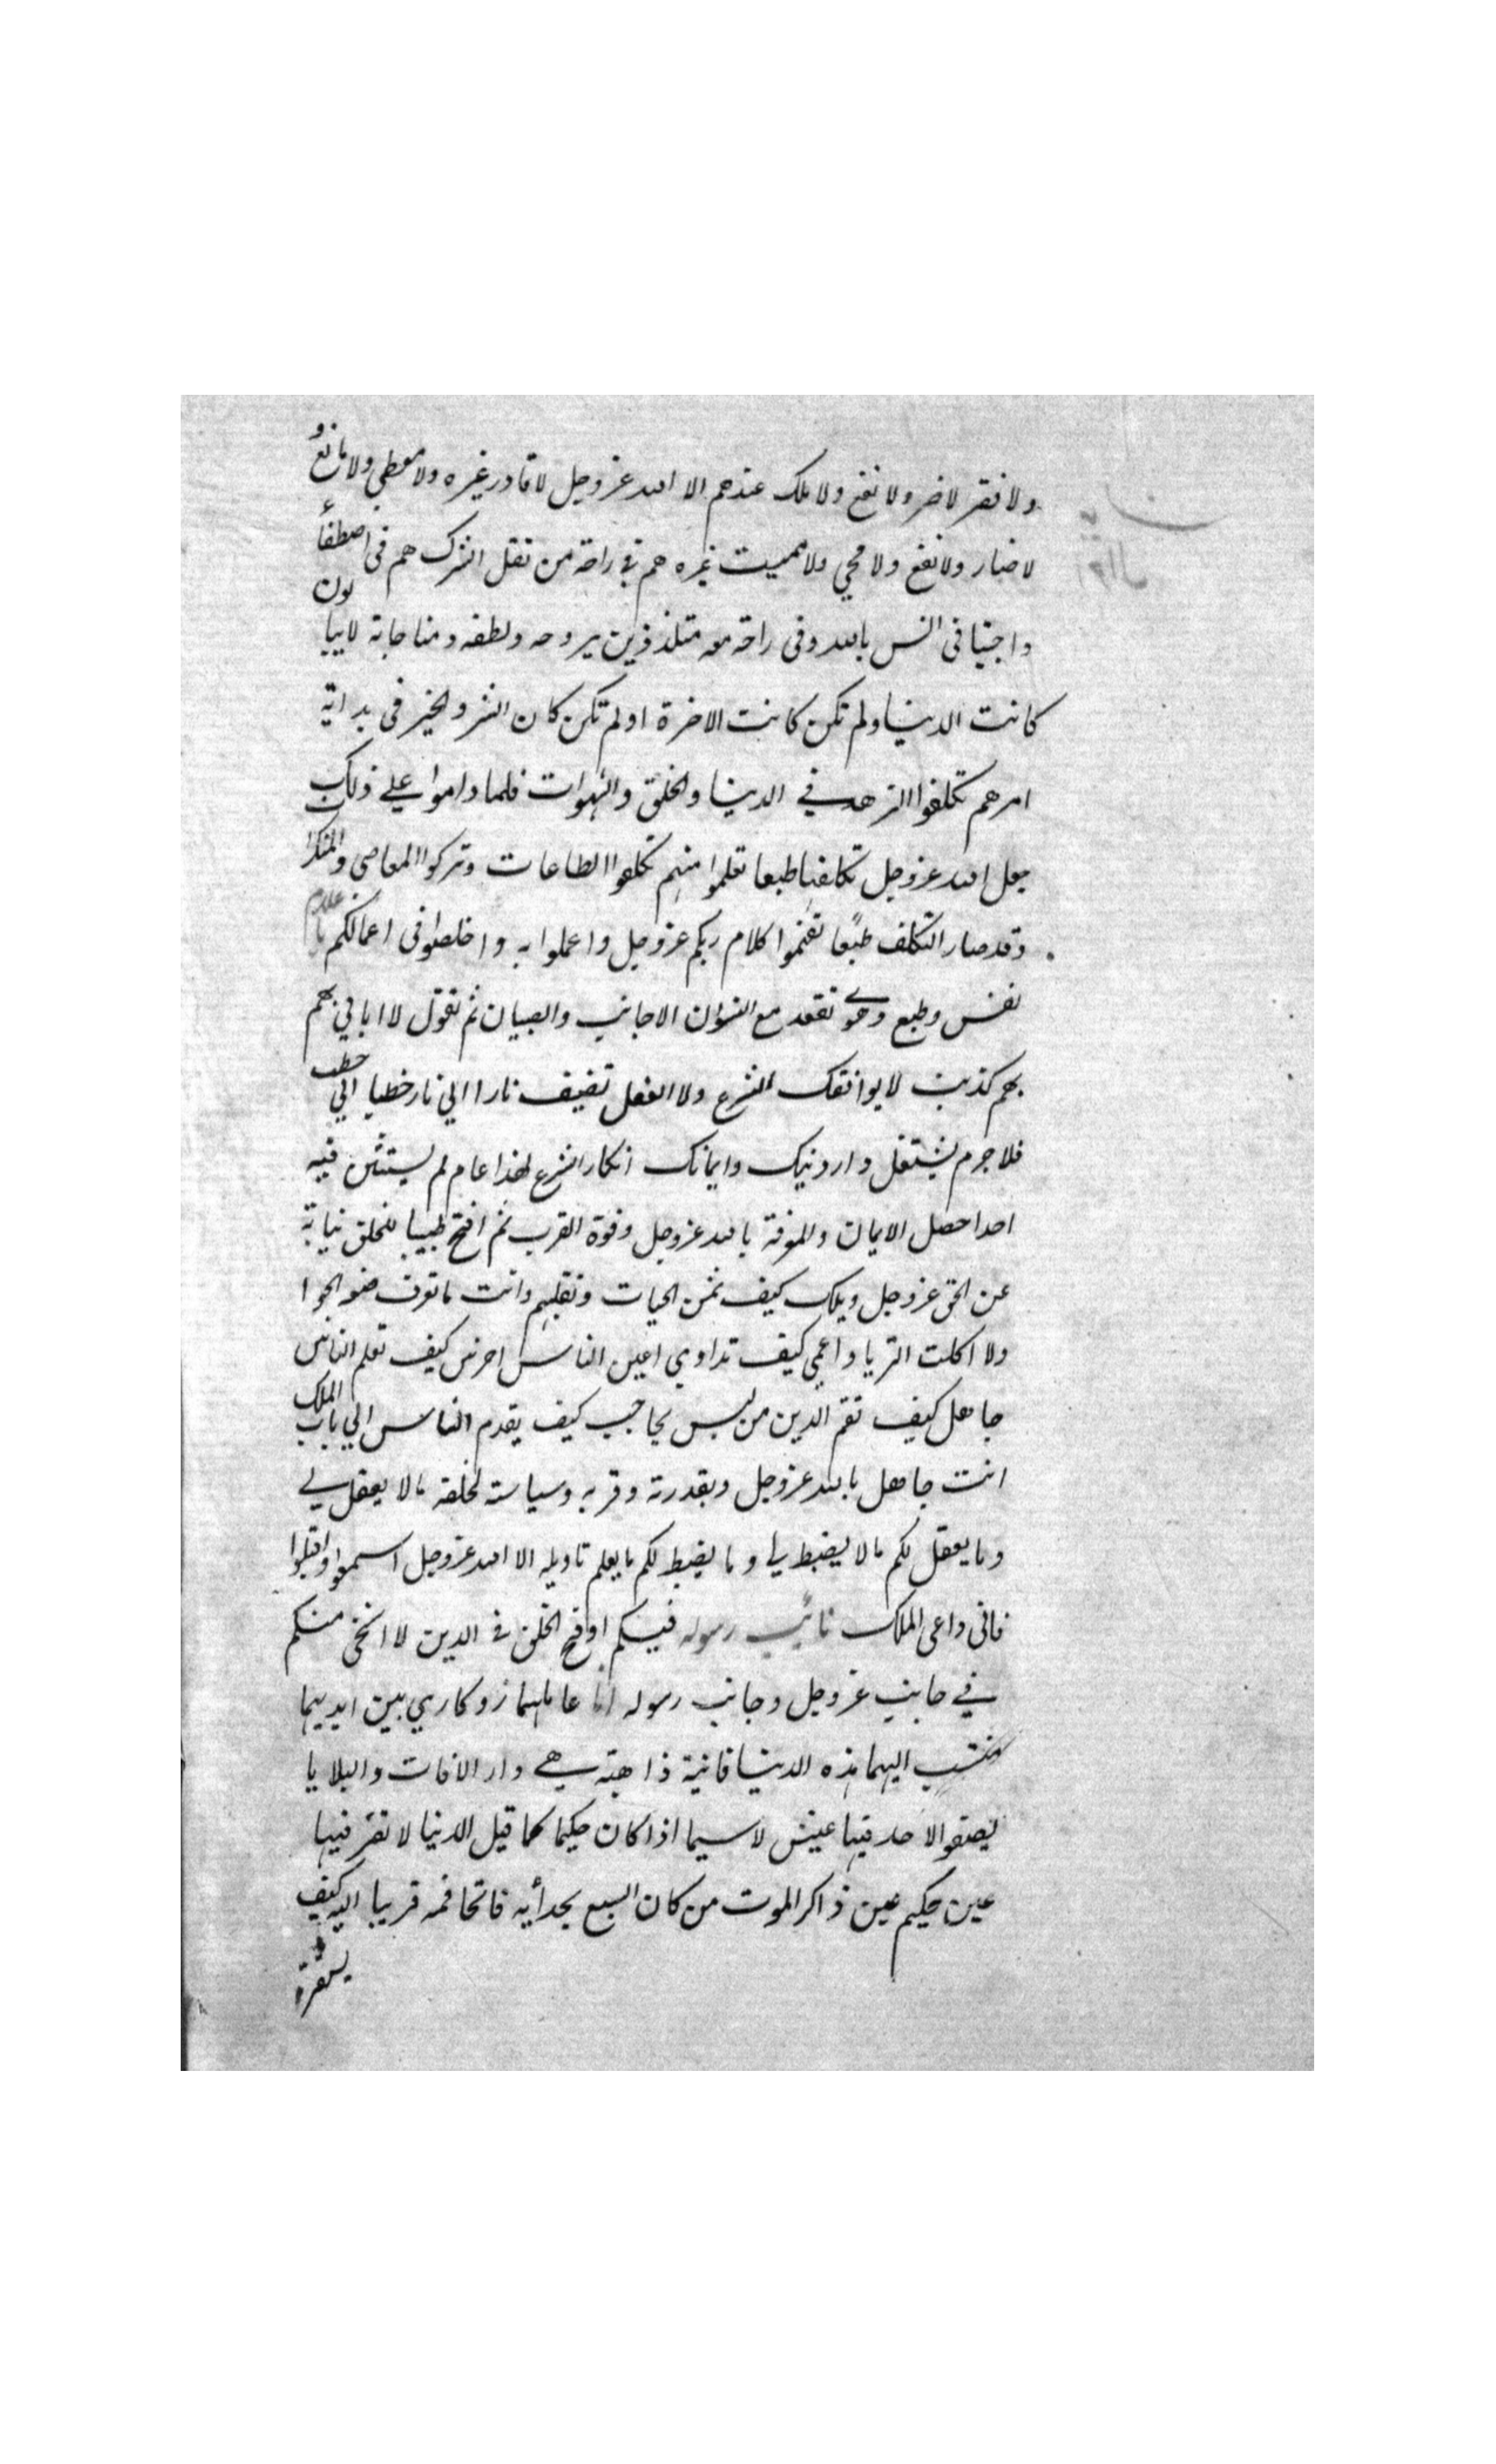 ولا فقر لا ضر ولا نفع ولا ملك عندهم الا الله عز وجل لا قادر غيره ولا معطي ولا مانع و
لا ضار ولا نفع ولا محي ولا مميت غيره هم في راحة من ثقل الشرك هم في اصطفاء
واجتبا في انس بالله وفي راحة معه متلذذين بروحه ولطفه ومناجاته لا يبالون
كانت الدنيا ولم تكن كانت الاخرة او لم تكن كان الشر والخير في بداية
امرهم تكلفوا الزهد في الدنيا والخلق والشهوات فلما داموا على ذلك
جعل الله عز وجل تكلفها طبعا تعلموا منهم تكلفوا الطاعات وتركوا المعاصي والمنكرا
وقد صار التكلف طبعا تفهموا كلام ربكم عز وجل واعملوا به واخلصوا في اعمالكم
نفس وطبع وهوى تقعد مع النسوان الاجانب والصبيان ثم تقول لا ابالي بهم
بهم كذبت لا يوافقك الشرع ولا العقل تضيف نارا الى نار حطبا الى حطب
فلا جرم يشتعل دار دنيك وايمانك انكار الشرع لهذا عام لم يستثن فيه
احدا حصل الايمان والمعرفة بالله عز وجل وقوة القرب ثم افتح طبيبا للخلق نيابة
عن الحق عز وجل ويلك كيف تمس الحيات وتقلبهم وانت ما تعرف صنع الحوا
ولا اكلت الترياق اعمى كيف تداوي اعين الناس اخرس كيف تعلم الناس
جاهل كيف تقم الدين من ليس بحاجب كيف يقدم الناس الى باب الملك
انت جاهل بالله عز وجل وبقدرته وقربه وسياسته لخلقه ما لا يعقل لي
وما يعقل لكم ما لا يضبط لي وما يضبط لكم ما يعلم تاويله الا الله عز وجل اسمعوا واقبلوا
فاني داعي الملك نائب رسوله فيكم اوقح الخلق في الدين لا استحي منكم
في جانب عز وجل وجانب رسوله انا عاملهما زوكاري بين ايديهما
منتسب اليهما هذه الدنيا فانية ذاهبة هي دار الافات والبلايا
ليصفو الاحد فيها عيش لا سيما اذا كان حكيما كما قيل الدنيا لا تقر فيها
عين حكيم عين ذاكر الموت من كان السبع بحذائه فاتحا فمه قريبا اليه كيف
يستقر